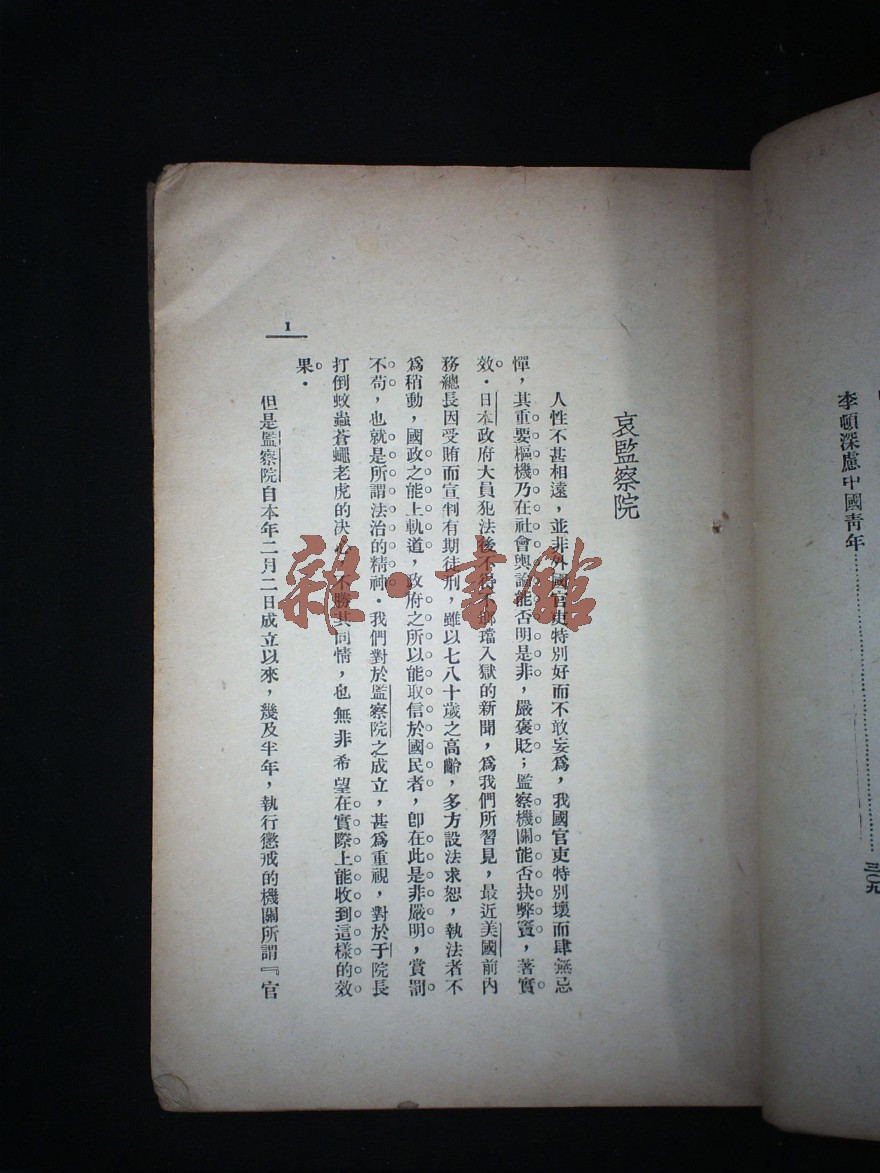 李頓深慮中國靑年……三〇九
哀監察院
人性不甚相遠，並非外國官吏特別好而不敢妄爲，我國官吏特別壞而肆無忌
憚，其重要樞機乃在社會輿論能否明是非，嚴褒貶；監察機關能否抉弊竇，著實
效．日本政府大員犯法後不得不鎯璫入獄的新聞，爲我們所習見，最近美國前內
務總長因受賄而宣判有期徒刑，雖以七八十歲之高齡，多方設法求恕，執法者不
爲稍動，國政之能上軌道，政府之所以能取信於國民者，卽在此是非嚴明，賞罰
不苟，也就是所謂法治的精神．我們對於監察院之成立，甚爲重視，對於于院長
打倒蚊蟲蒼蠅老虎的決心，不勝其同情，也無非希望在實際上能收到這樣的效
果．
但是監察院自本年二月二日成立以來，幾及半年，執行懲戒的機關所謂『官
1
雜·書館